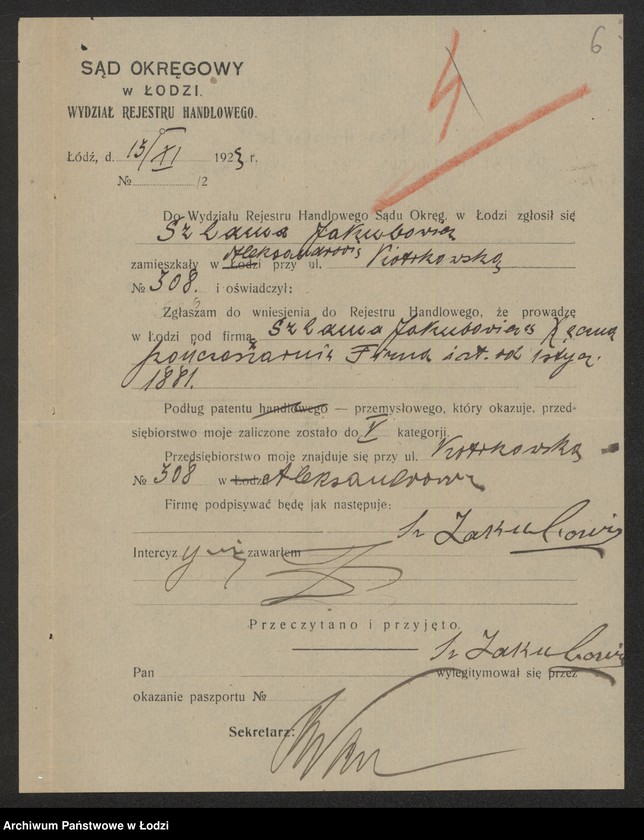 6
SĄD OKRĘGOWY
W ŁODZI.
WYDZIAŁ REJESTRU HANDLOWEGO.
Łódź, d. 15/XI 1923 r.
№ /2
Do Wydziału Rejestru Handlowego Sądu Okręg. w Łodzi zgłosił się
Szlama Jakubowicz
zamieszkały w Łodzi Aleksandrowie przy ul. Piotrkowska
№ 308. i oświadczył:
Zgłaszam do wniesienia do Rejestru Handlowego, że prowadzę
w Łodzi pod firmą Szlama Jakubowicz Ręczna
pończoszarnia Firma istn. od
1881.
Podług patentu handlowego — przemysłowego, który okazuje, przed-
siębiorstwo moje zaliczone zostało do V kategorji.
Przedsiębiorstwo moje znajduje się przy ul. Piotrkowska
№ 308 w Łodzi Aleksandrowie
Firmę podpisywać będę jak następuje:
Sz Jakubowicz
Intercyzy nie zawarłem
Przeczytano i przyjęto.
Sz Jakubowicz
Pan wylegitymował się przez
okazanie paszportu №
Sekretarz:
Archiwum Państwowe w Łodzi